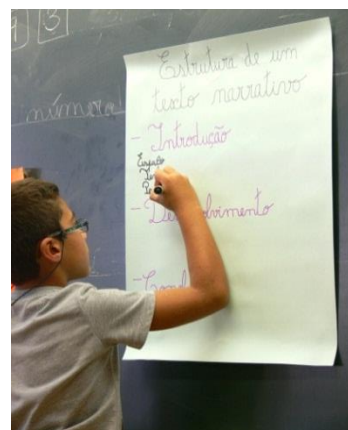 3
numeral
Estrutura de um
texto narrativo
- Introdução
Espaço
- Desenvolvimento